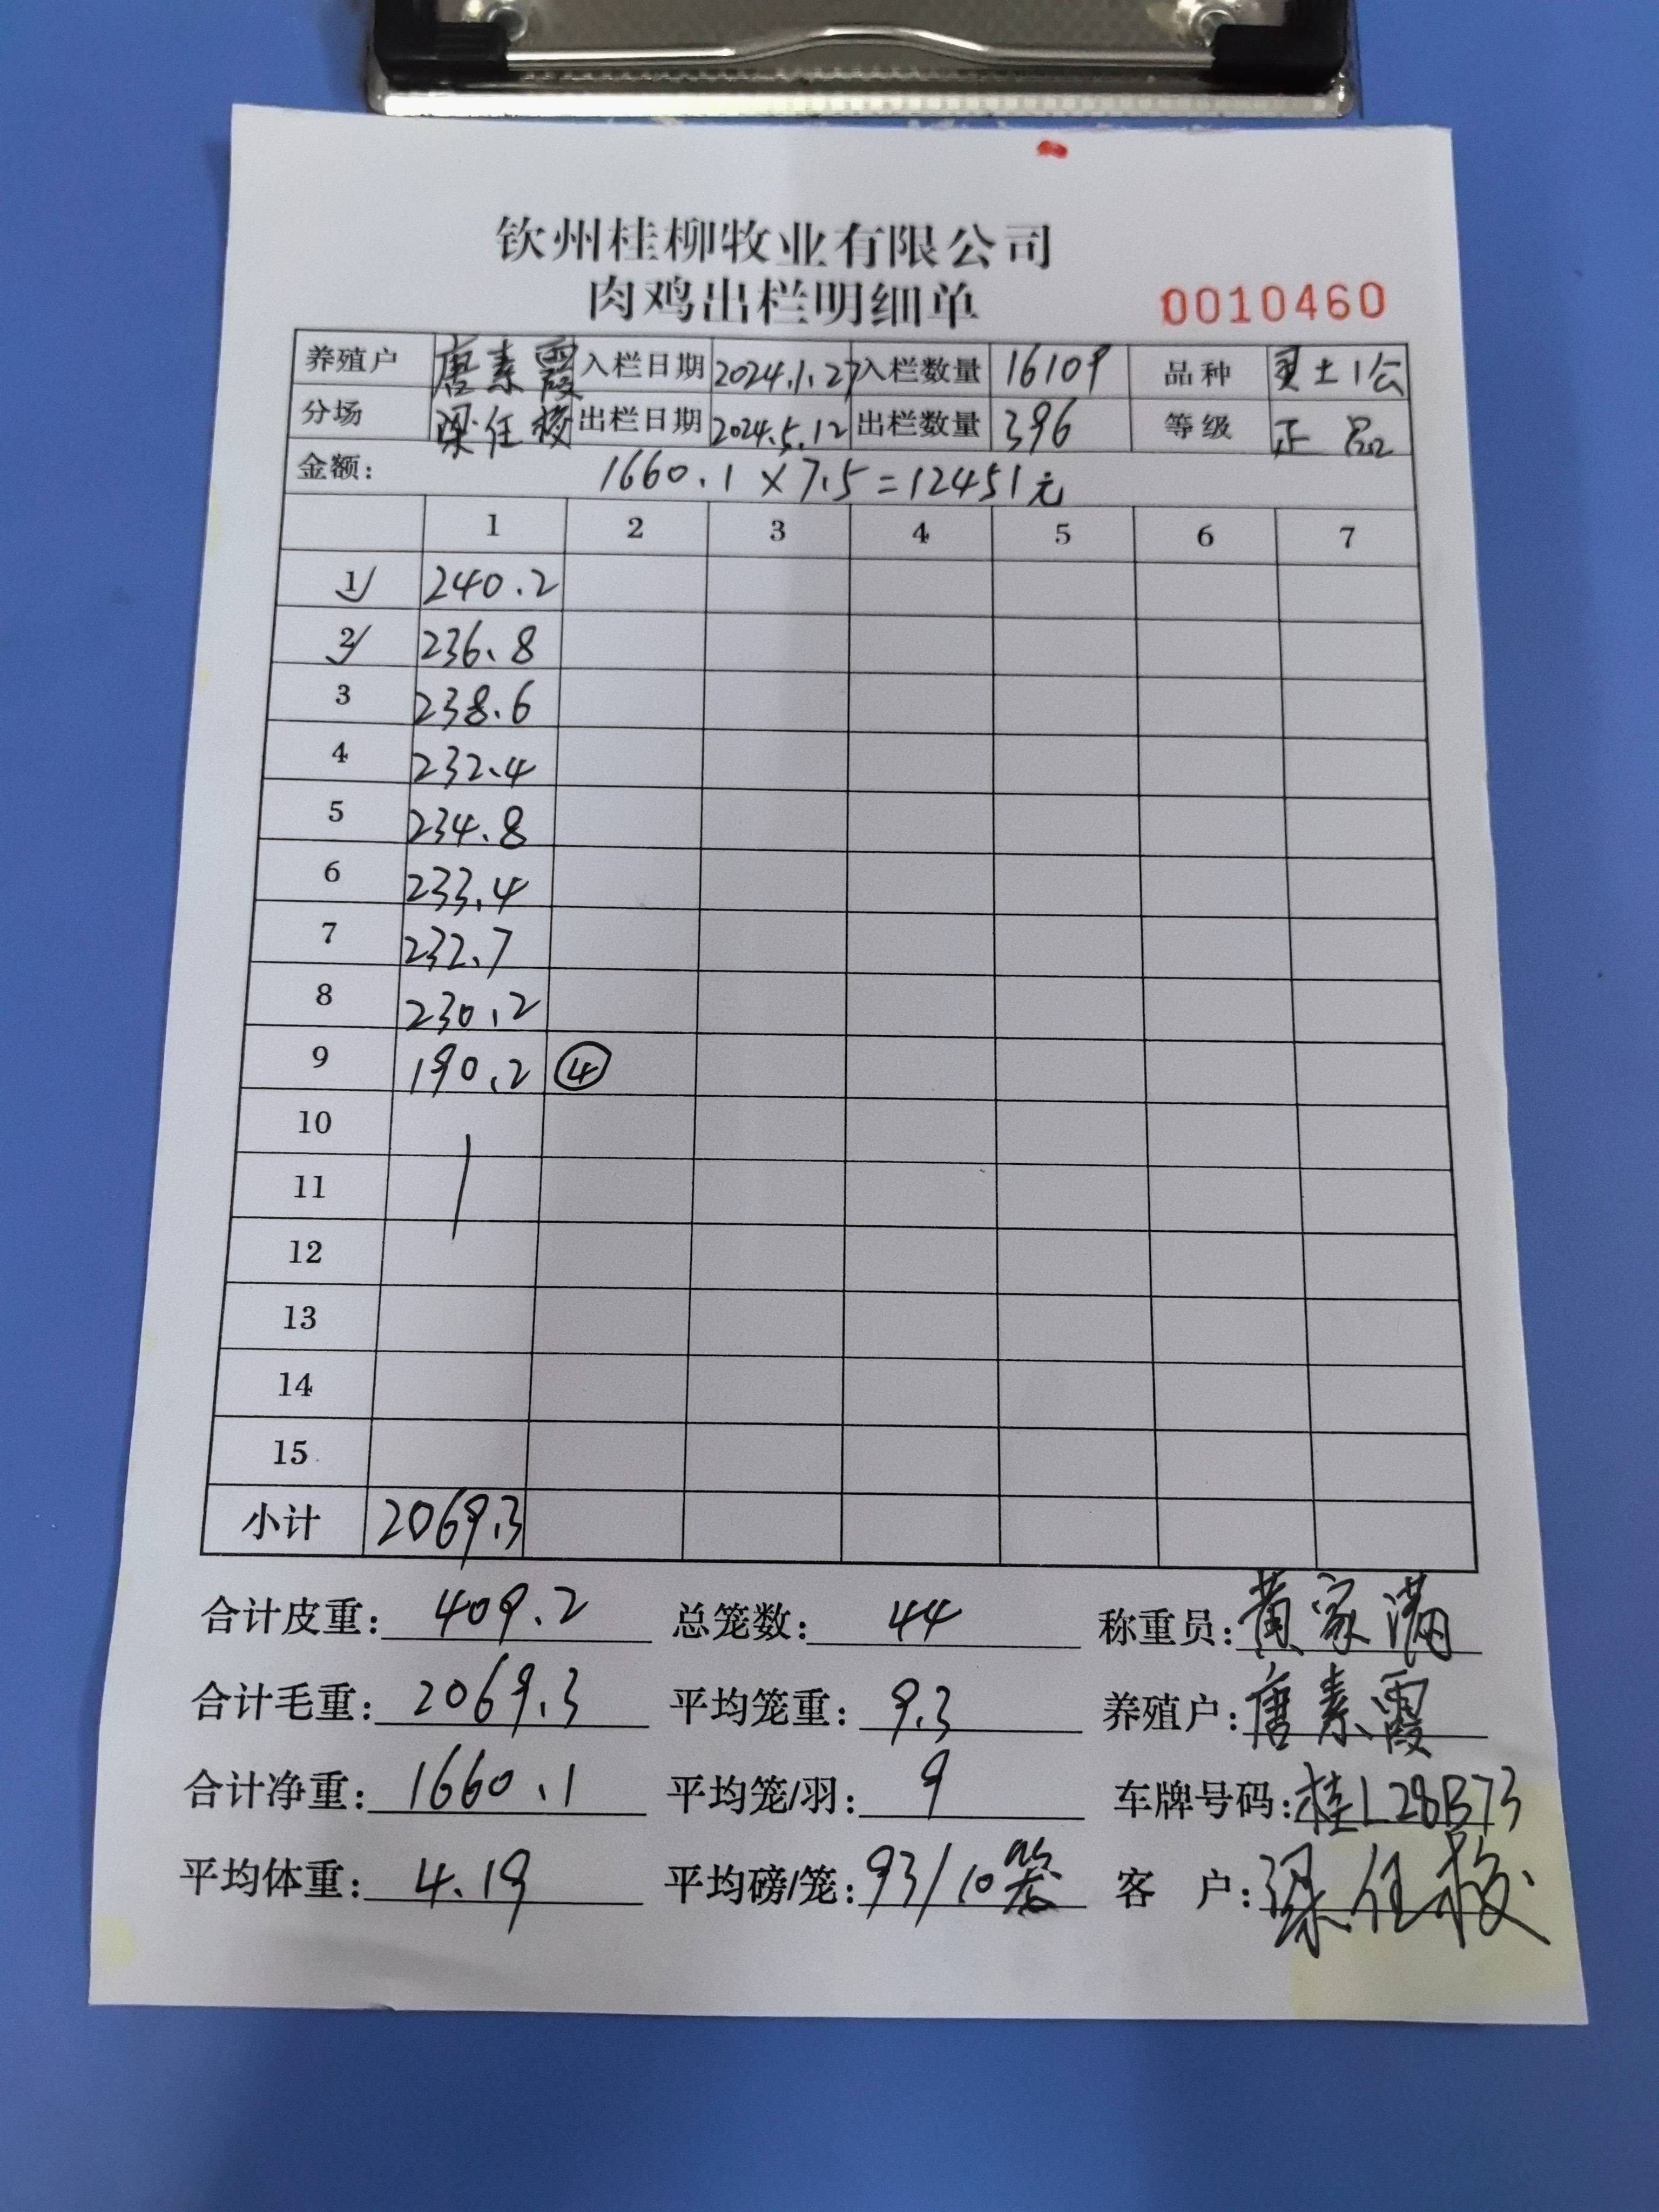 钦州桂柳牧业有限公司
肉鸡出栏明细单 0010460
养殖户 唐素霞 入栏日期 2024.1.27 入栏数量 16109 品种 灵土1公
分场 梁任梭 出栏日期 2024.5.12 出栏数量 396 等级 正品
金额: 1660.1×7.5=12451元
1 2 3 4 5 6 7
1 240.2
2 236.8
3 238.6
4 232.4
5 234.8
6 233.4
7 232.7
8 230.2
9 190.2 ④
10
11
12
13
14
15
小计 2069.3
合计皮重: 409.2 总笼数: 44 称重员: 黄家满
合计毛重: 2069.3 平均笼重: 9.3 养殖户: 唐素霞
合计净重: 1660.1 平均笼/羽: 9 车牌号码: 桂L28B73
平均体重: 4.19 平均磅/笼: 93/10笼 客 户: 梁任梭